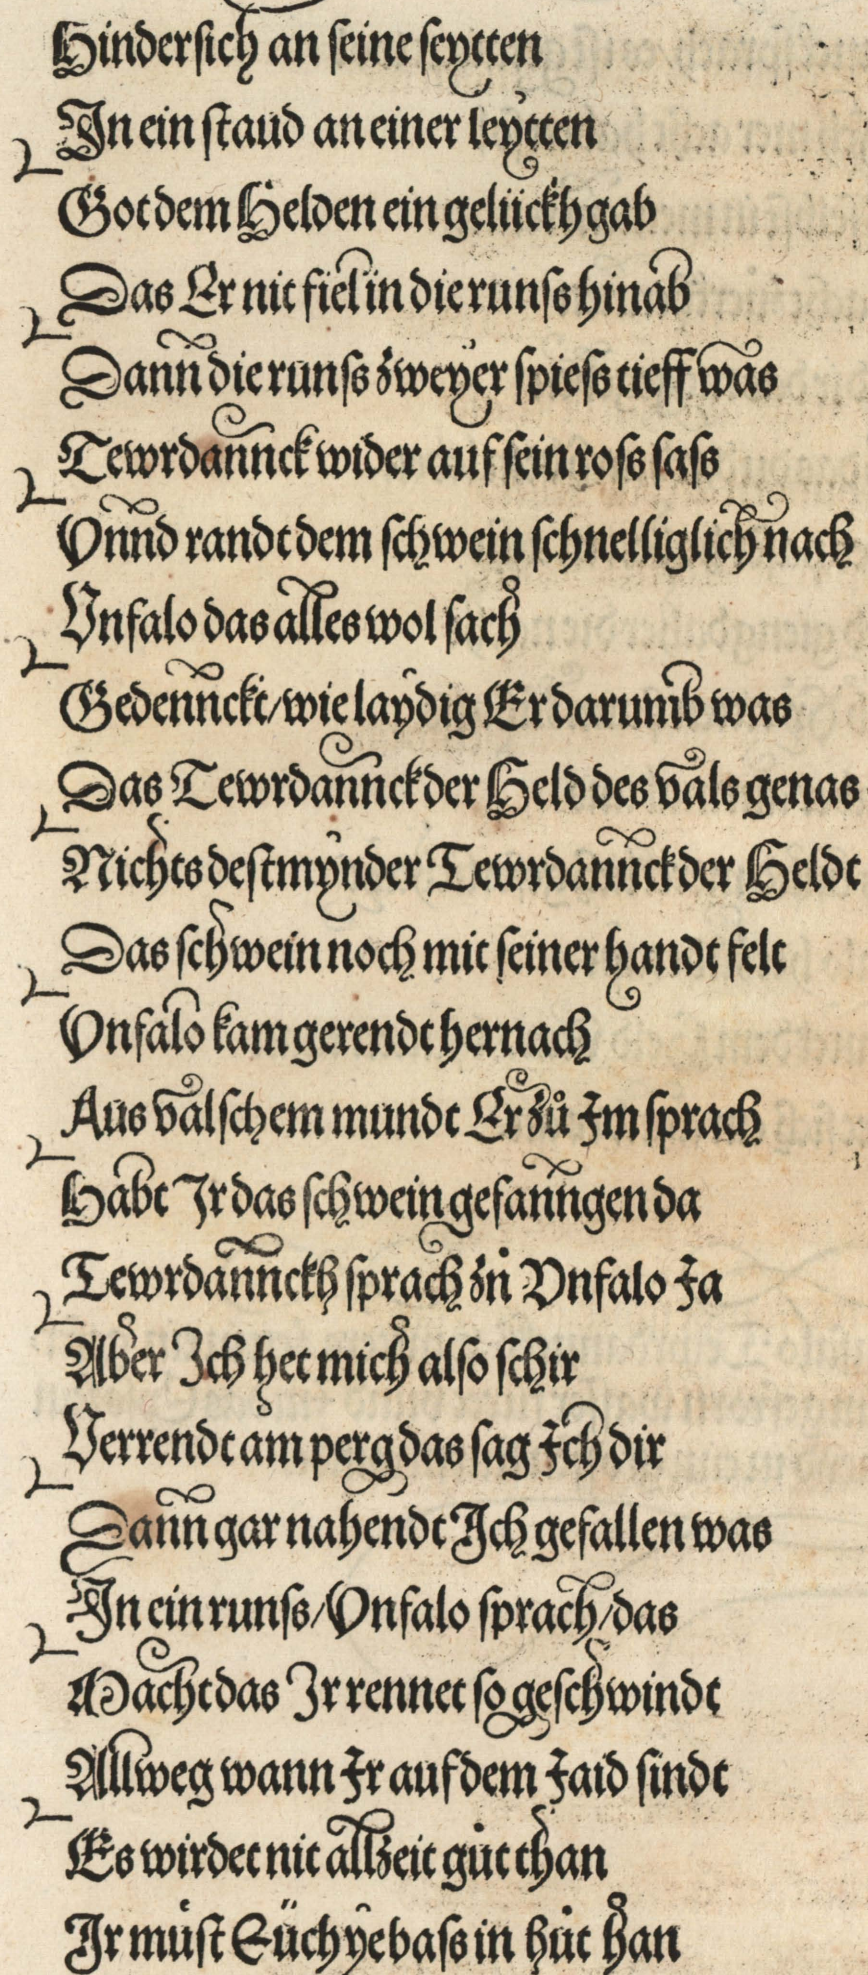 Hindersich an seine seytten
In ein staud an einer leytten
Got dem Helden ein gelückh gab
Das Er nit fiel in die runss hinab
Dann die runss zweyer spiess tieff was
Tewrdannck wider auf sein ross sass
Vnnd randt dem schwein schnelliglich nach
Vnfalo das alles wol sach
Gedennckt/wie laydig Er darumb was
Das Tewrdannck der Held des vals genas
Nichts destmynder Tewrdannck der Heldt
Das schwein noch mit seiner handt felt
Vnfalo kam gerendt hernach
Aus valschem mundt Er zů Im sprach
Habt Ir das schwein gefanngen da
Tewrdannckh sprach zů Vnfalo Ja
Aber Ich het mich also schir
Verrendt am perg das sag Ich dir
Dann gar nahendt Ich gefallen was
In ein runss/Vnfalo sprach/das
Macht das Ir rennet so geschwindt
Allweg wann Ir auf dem Jaid sindt
Es wirdet nit allzeit gůt than
Ir můst Eüch ye bass in hůt han